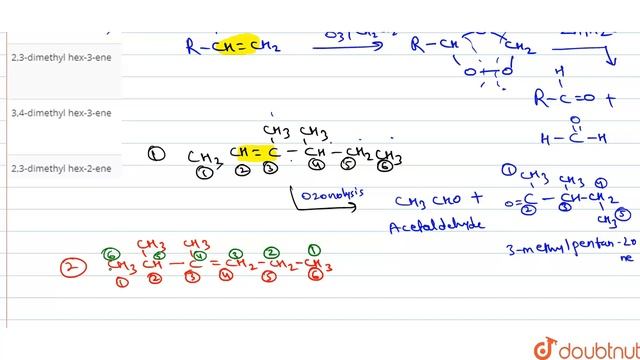 2,3-dimethyl hex-3-ene
3,4-dimethyl hex-3-ene
2,3-dimethyl hex-2-ene
R-CH=CH2
R-CH
CH2
O-O
H
R-C=O +
O
H-C-H
CH3 CH3
① CH3 CH=C-CH-CH2CH3
① ② ③ ④ ⑤ ⑥
Ozonolysis
CH3 CHO +
Acetaldehyde
① CH3 CH3 ④
O=C-CH-CH2
② ③
CH3 ⑤
3-methylpentan-2o
ne
CH3 CH3
⑥ ⑤ ④ ③ ② ①
② CH3 CH-C=CH2-CH2-CH3
① ② ③ ④ ⑤ ⑥
doubtnut